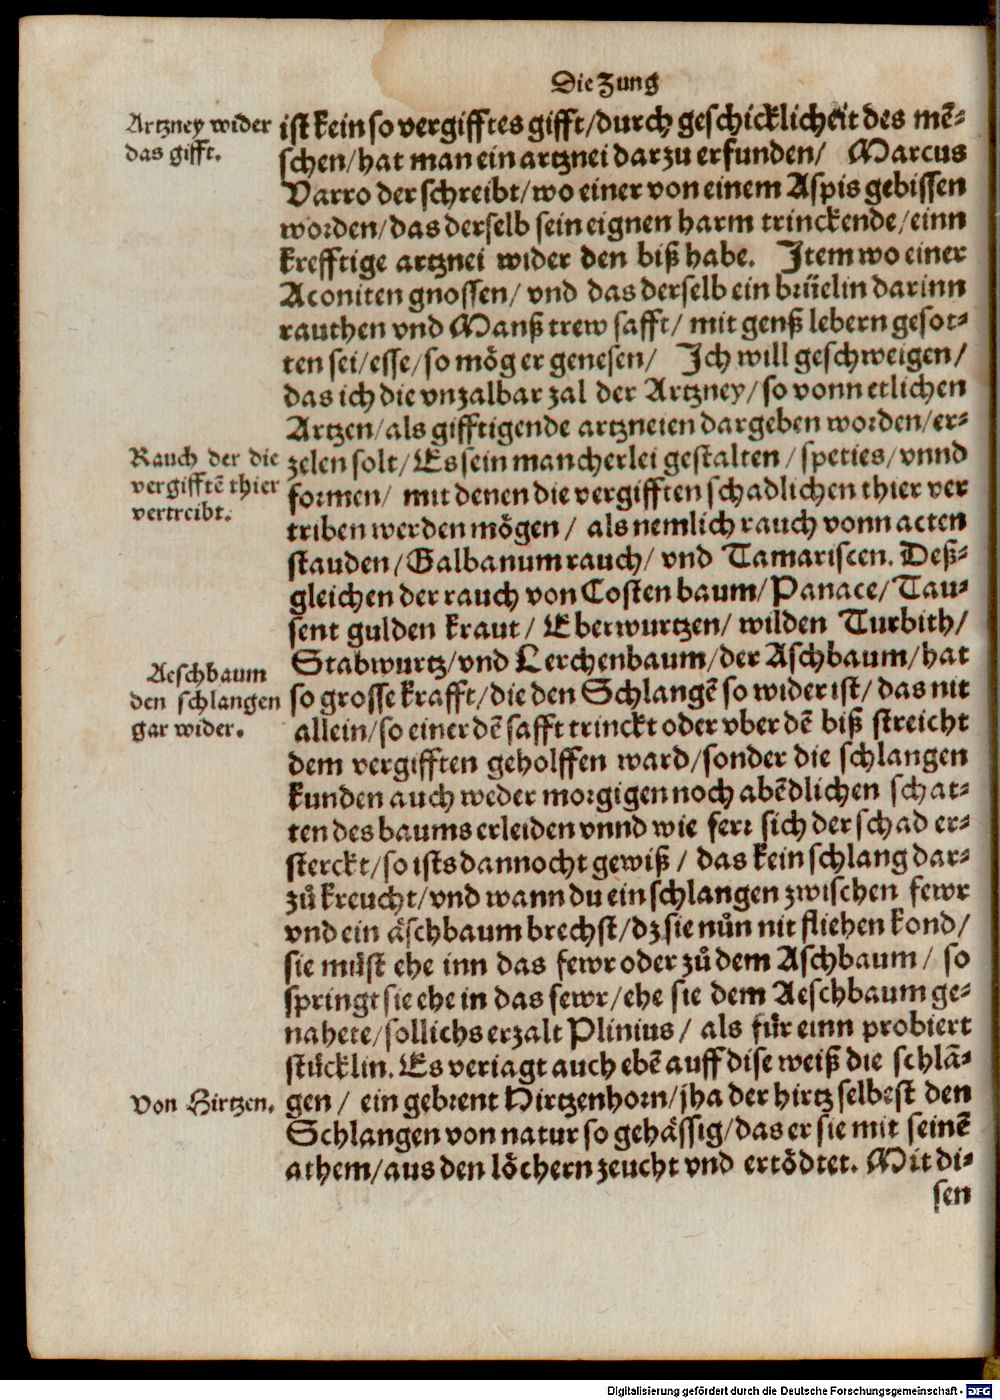 Die Zung
Artzney wider
das gifft.
ist kein so vergifftes gifft/durch geschicklicheit des mẽ-
schen/hat man ein artznei darzu erfunden/ Marcus
Varro der schreibt/wo einer von einem Aspis gebissen
worden/das derselb sein eignen harm trinckende/einn
krefftige artznei wider den biß habe. Item wo einer
Aconiten gnossen/ vnd das derselb ein brüelin darinn
rauthen vnd Manß trew safft/ mit genß lebern gesot-
ten sei/esse/so mög er genesen/ Ich will geschweigen/
das ich die vnzalbar zal der Artzney/so vonn etlichen
Artzen/als gifftigende artzneien dargeben worden/er-
Rauch der die
vergifftẽ thier
vertreibt.
zelen solt/Es sein mancherlei gestalten/speties/vnnd
formen/ mit denen die vergifften schadlichen thier ver
triben werden mögen/ als nemlich rauch vonn acten
stauden/Galbanum rauch/ vnd Tamariscen. Deß-
gleichen der rauch von Costen baum/Panace/Tau-
sent gulden kraut/ Eberwurtzen/ wilden Turbith/
Stabwurtz/vnd Lerchenbaum/der Aschbaum/hat
Aeschbaum
den schlangen
gar wider.
so grosse krafft/die den Schlangẽ so wider ist/das nit
allein/so einer dẽ safft trinckt oder vber dẽ biß streicht
dem vergifften geholffen ward/sonder die schlangen
kunden auch weder morgigen noch abẽdlichen schat-
ten des baums erleiden vnnd wie ferr sich der schad er-
sterckt/so ists dannocht gewiß/ das kein schlang dar-
zů kreucht/vnd wann du ein schlangen zwischen fewr
vnd ein äschbaum brechst/dz sie nůn nit fliehen kond/
sie müst ehe inn das fewr oder zů dem Aschbaum/ so
springt sie ehe in das fewr/ehe sie dem Aeschbaum ge-
nahete/sollichs erzalt Plinius/ als für einn probiert
stücklin. Es veriagt auch ebẽ auff dise weiß die schlã-
Von Hirtzen.
gen/ ein gebrent Hirtzenhorn/jha der hirtz selbest den
Schlangen von natur so gehässig/das er sie mit seinẽ
athem/aus den löchern zeucht vnd ertödtet. Mit di-
sen
Digitalisierung gefördert durch die Deutsche Forschungsgemeinschaft - DFG